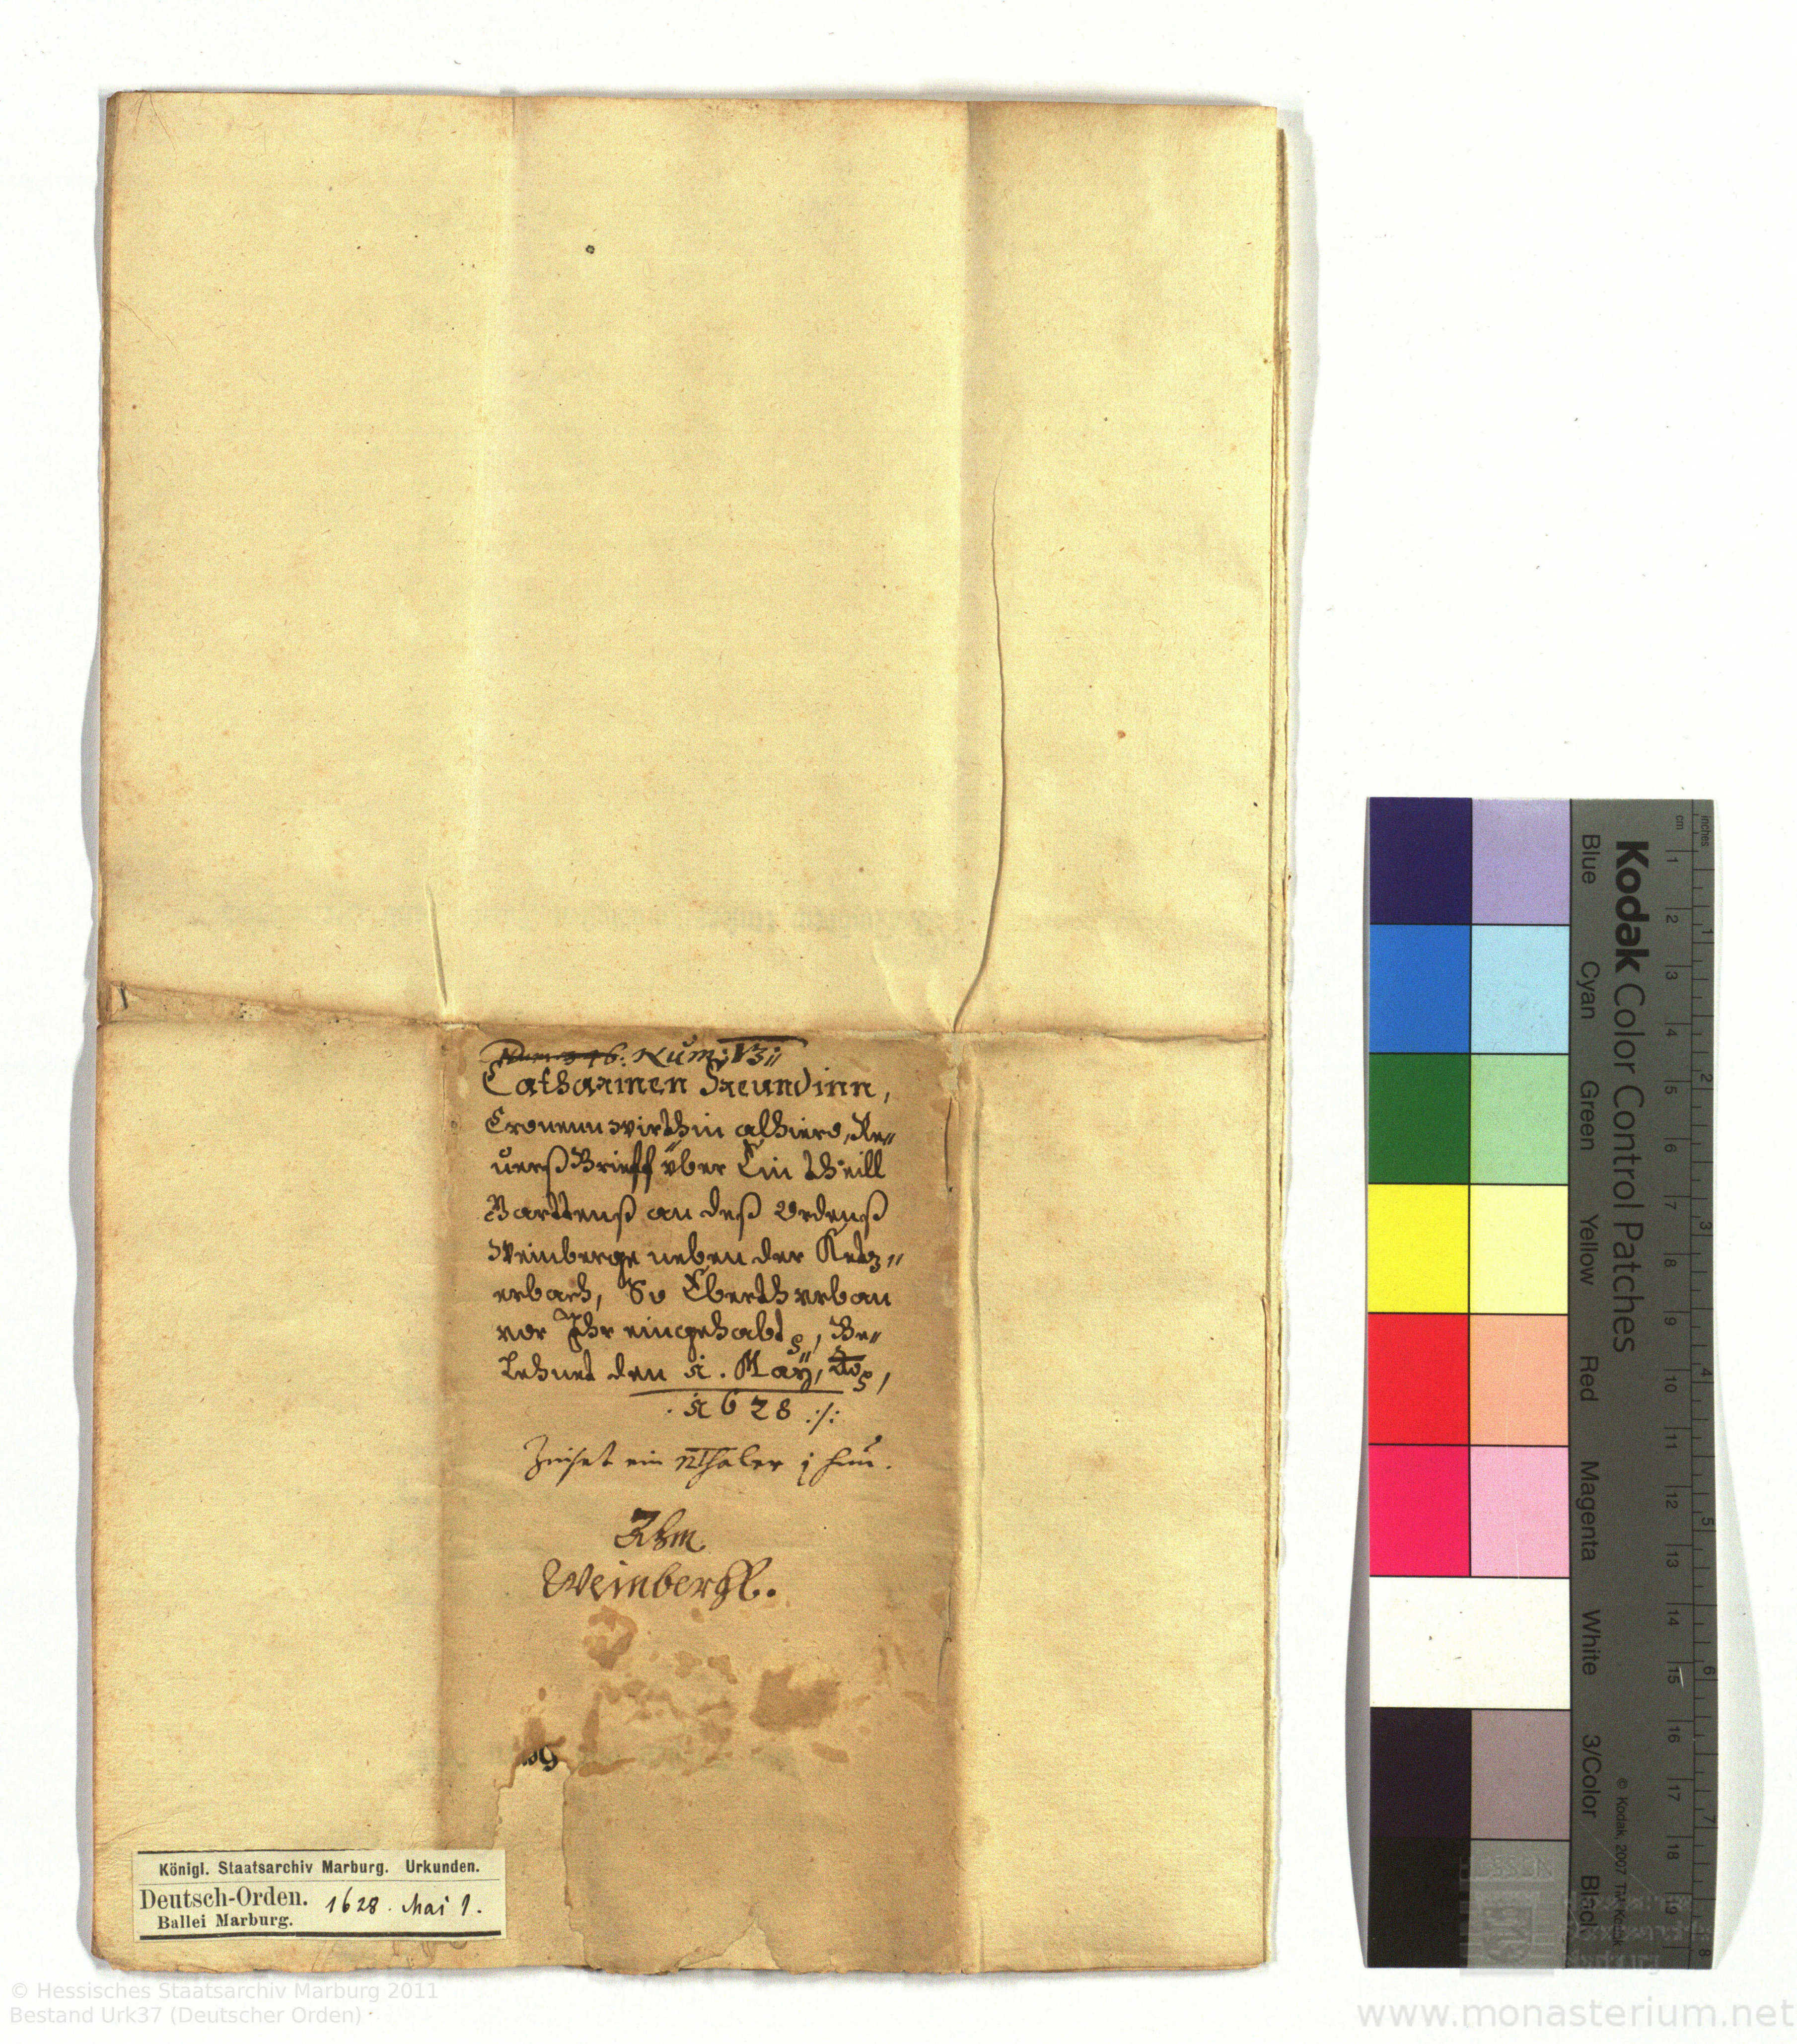 Num: 13 ;;
Catharinen Freundinn,
Cronenn wirthin alhiero, Re„
uerß Brieff über Ein theill
Garttenß an deß Ordenß
Weinberge neben der Ketz„
erbach, So Eberth urban
vor Ihr eingehabt, Be„
Lehnet den 1. Maÿ, Ao,
.1628 ./.
Zinset ein Rthaler j hun.
Zum
Weinbergk.
Königl. Staatsarchiv Marburg. Urkunden.
Deutsch-Orden. 1628. Mai 1.
Ballei Marburg.
© Hessisches Staatsarchiv Marburg 2011
Bestand Urk37 (Deutscher Orden)
Kodak Color Control Patches
Blue Cyan Green Yellow Red Magenta White 3/Color Black
© Kodak, 2007 TM: Kodak
cm 1 2 3 4 5 6 7 8 9 10 11 12 13 14 15 16 17 18 19
inches 1 2 3 4 5 6 7 8
www.monasterium.net